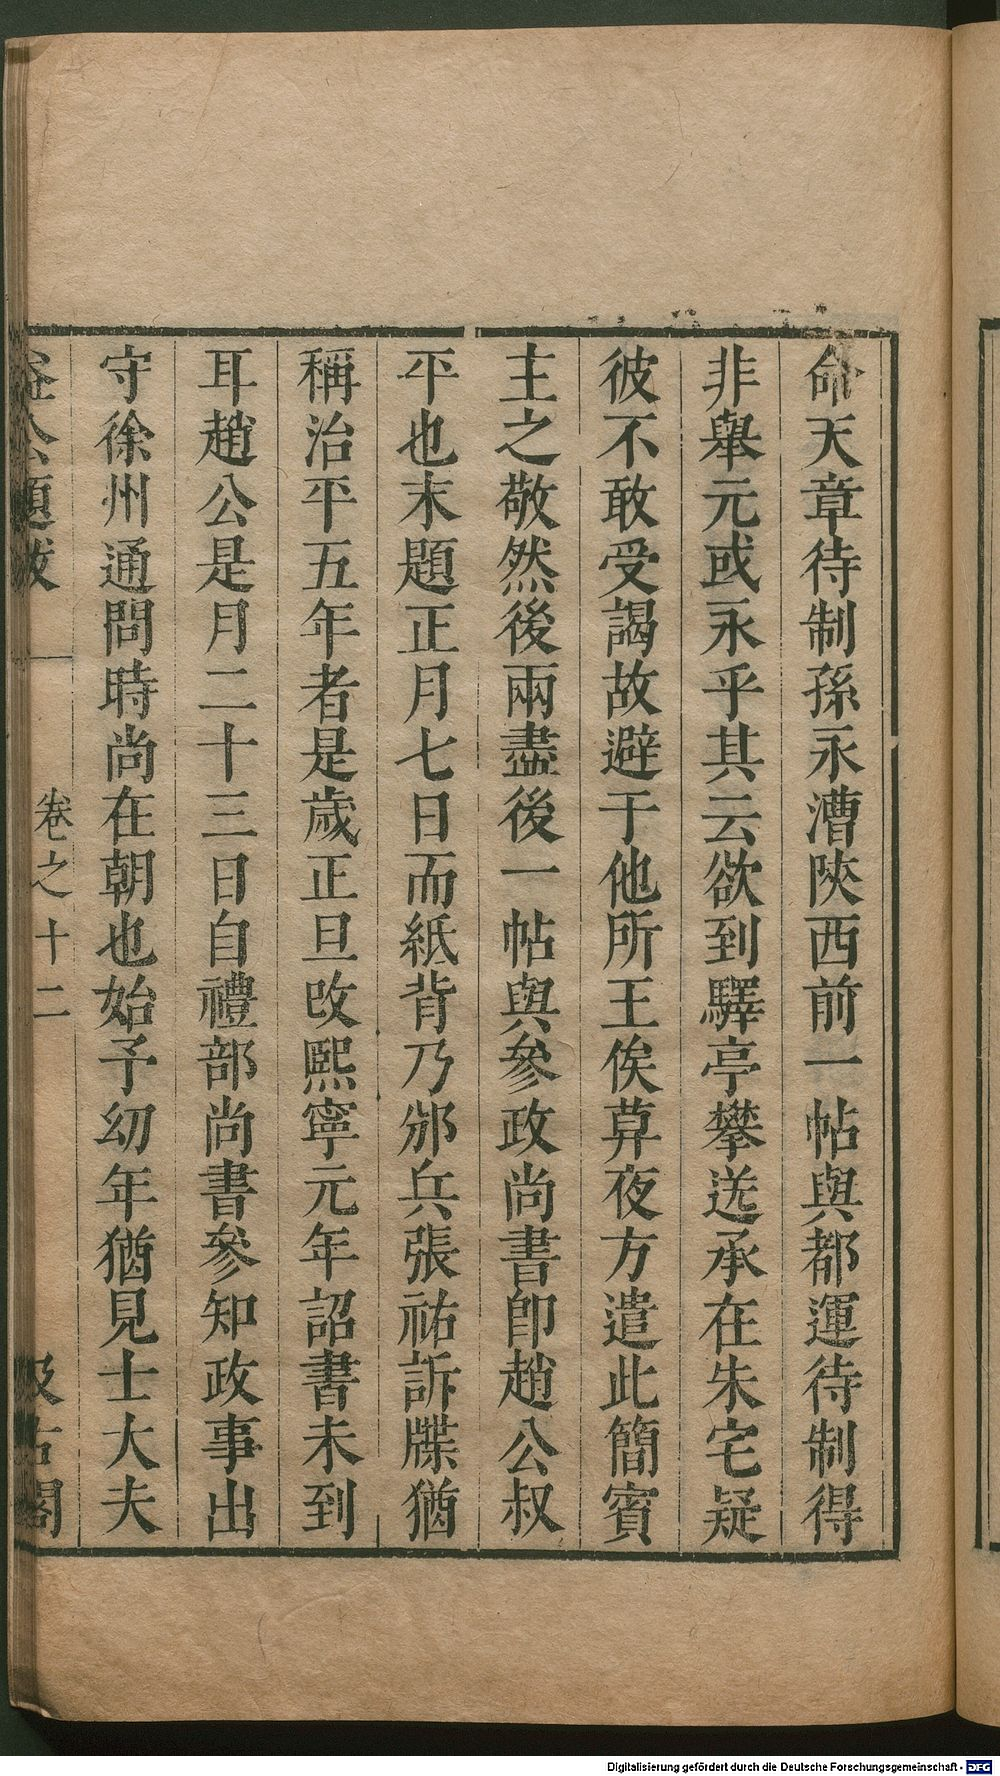 命天章待制孫永漕陝西前一帖與都運待制得
非舉元或永乎其云欲到驛亭攀送承在朱宅疑
彼不敢受謁故避于他所王俟莫夜方遣此簡賓
主之敬然後兩盡後一帖與參政尚書卽趙公叔
平也末題正月七日而紙背乃邠兵張祐訴牒猶
稱治平五年者是歲正旦改熙寧元年詔書未到
耳趙公是月二十三日自禮部尚書參知政事出
守徐州通問時尚在朝也始予幼年猶見士大夫
益公題跋 卷之十二 汲古閣
Digitalisierung gefördert durch die Deutsche Forschungsgemeinschaft - DFG